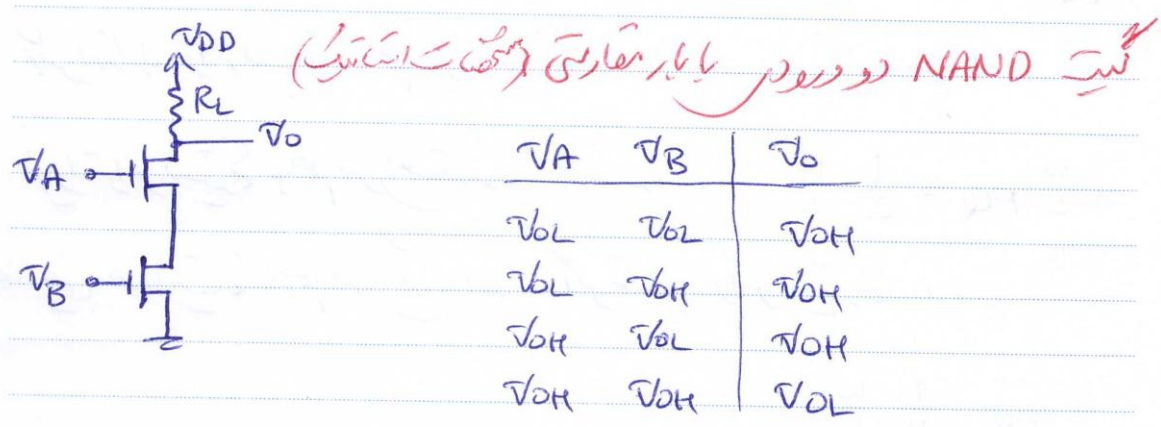 گیت NAND دو ورودی با بار مقاومتی (مشخصات استاتیک)
VDD
RL
Vo
VA
VB
VA VB Vo
VOL VOL VOH
VOL VOH VOH
VOH VOL VOH
VOH VOH VOL